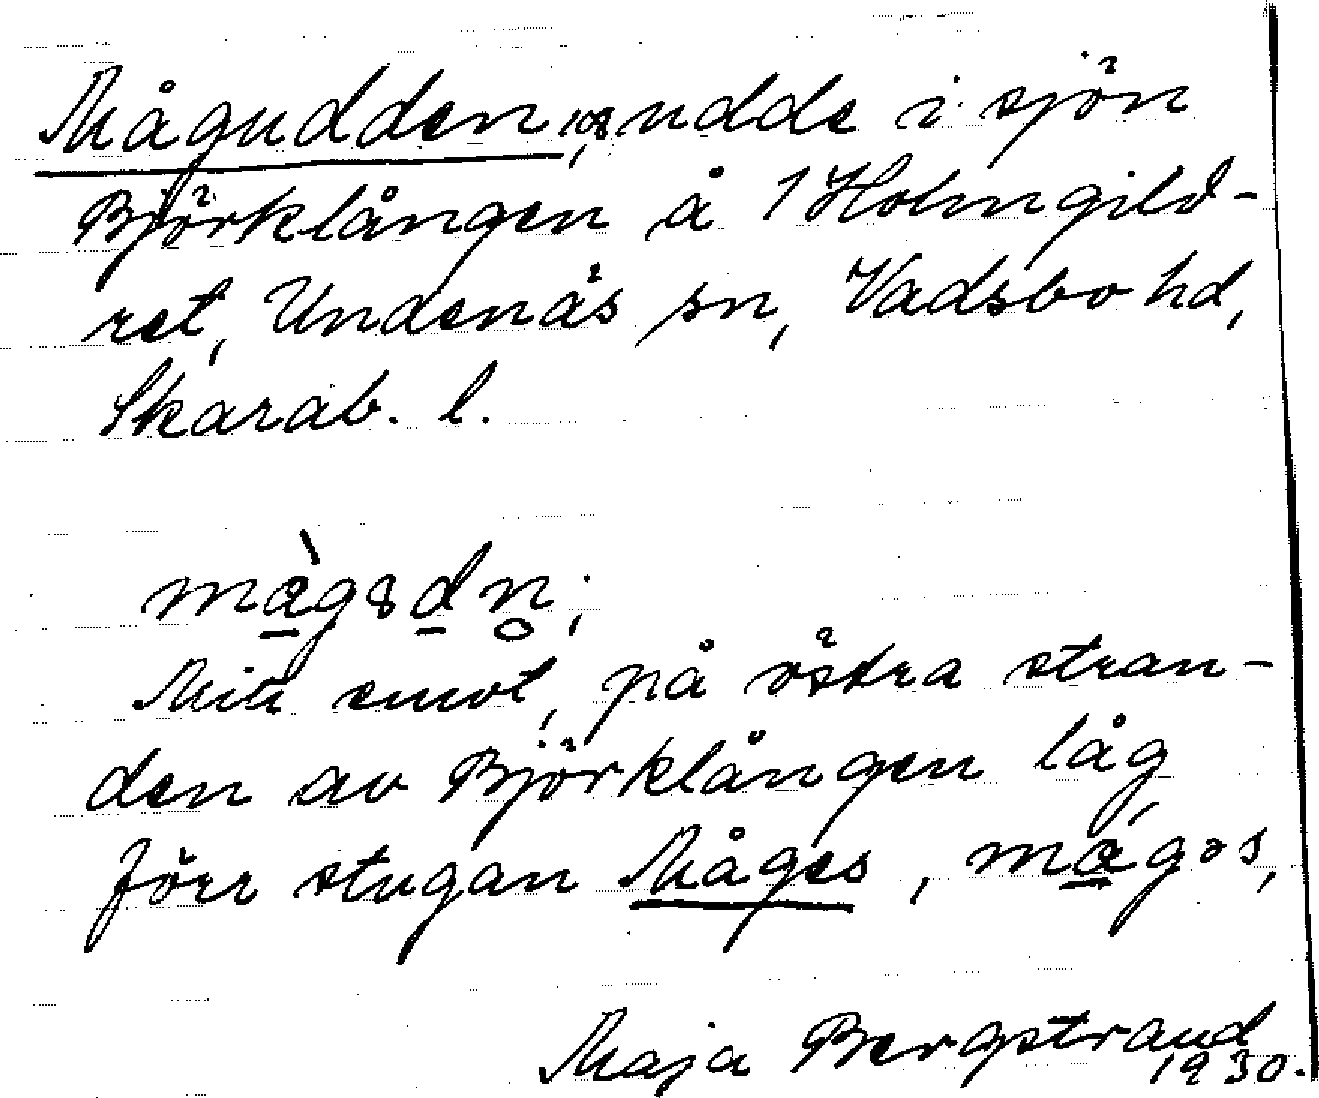 Mågudden, udde i sjön
Björklången å 1 Holmgild-
ret, Undenäs sn, Vadsbo hd,
Skarab. l.
Mitt emot, på östra stran-
den av Björklången låg
förr stugan Måges,
Maja Bergstrand
1930.